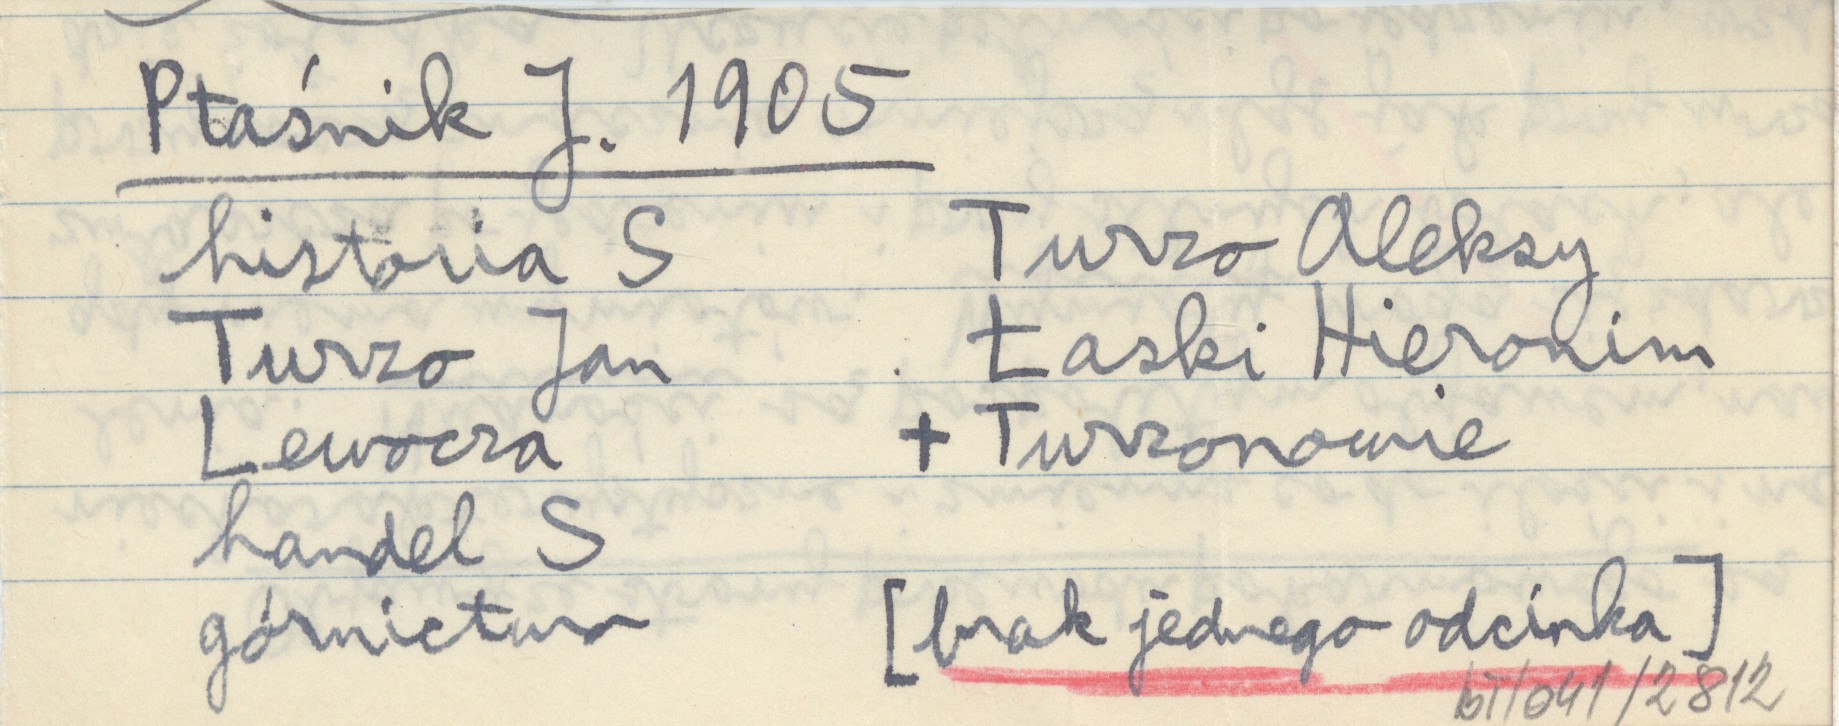 Ptaśnik J. 1905
historia S
Turzo Jan
Lewocza
handel S
górnictwo
Turzo Aleksy
Łaski Hieronim
+ Turzonowie
[brak jednego odcinka]
bT/041/2812